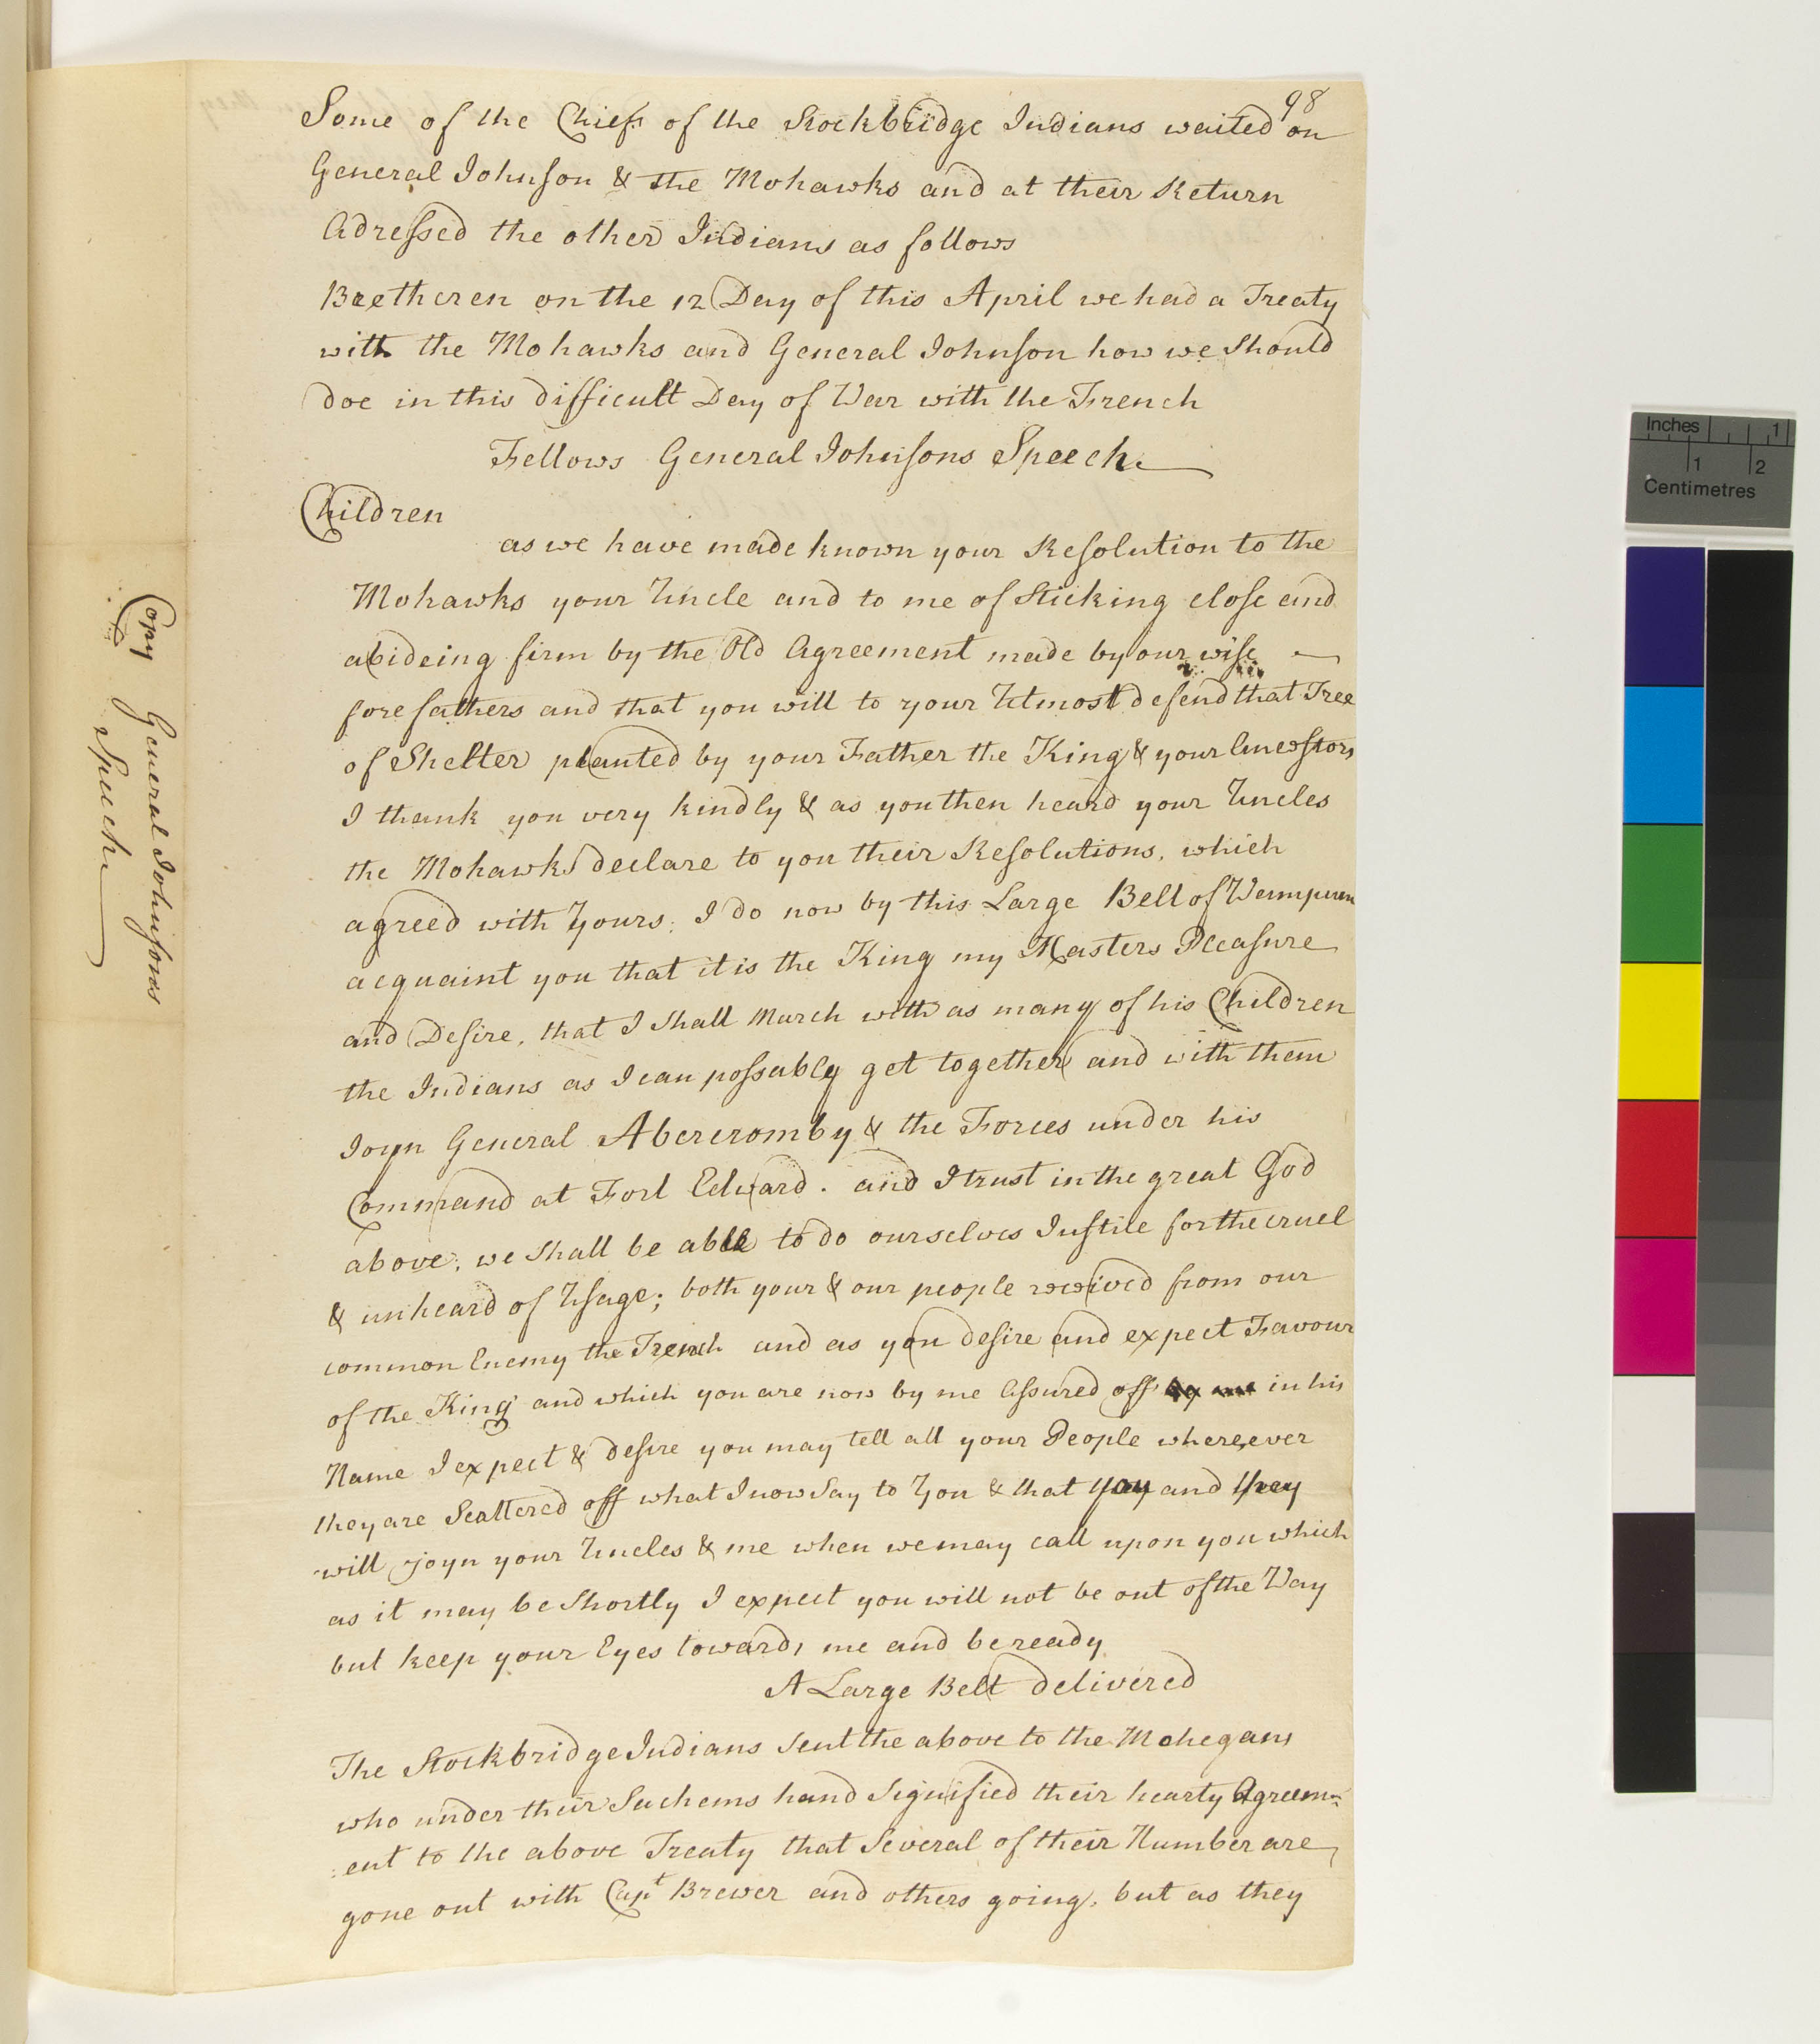 98
Some of the Chiefs of the Stockbridge Indians waited on
General Johnson & the Mohawks and at their Return
Adressed the other Indians as follows
Bretheren on the 12 Day of this April we had a Treaty
with the Mohawks and General Johnson how we Should
doe in this difficult Day of War with the French
Fellows General Johnsons Speech
Children
as we have made known your Resolution to the
Mohawks your Uncle and to me of Sticking close and
abideing firm by the Old Agreement made by our wise
forefathers and that you will to your Utmost defend that Tree
of Shelter planted by your Father the King & your Ancestors
I thank you very kindly & as you then heard your Uncles
the Mohawks declare to you their Resolutions, which
agreed with Yours. I do now by this Large Belt of Wampum
acquaint you that it is the King my Masters Pleasure
and Desire, that I shall March with as many of his Children
the Indians as I can possably get together and with them
Joyn General Abercromby & the Forces under his
Command at Fort Edward. and I trust in the great God
above, we shall be able to do ourselves Justice for the cruel
& unheard of Usage; both your & our people received from our
common Enemy the French and as you desire and expect Favour
of the King and which you are now by me Assured off by me in his
Name I expect & desire you may tell all your People where,ever
they are Scattered off what I now Say to You & that you and they
will joyn your Uncles & me when we may call upon you which
as it may be Shortly I expect you will not be out of the Way
but keep your Eyes towards me and be ready
A Large Belt delivered
The Stockbridge Indians Sent the above to the Mohegans
who under their Sachems hand Signified their hearty Agreem-
ent to the above Treaty that Several of their Number are
gone out with Capt Brewer and others going, but as they
Copy General Johnsons
Speech
Inches 1
1 2
Centimetres